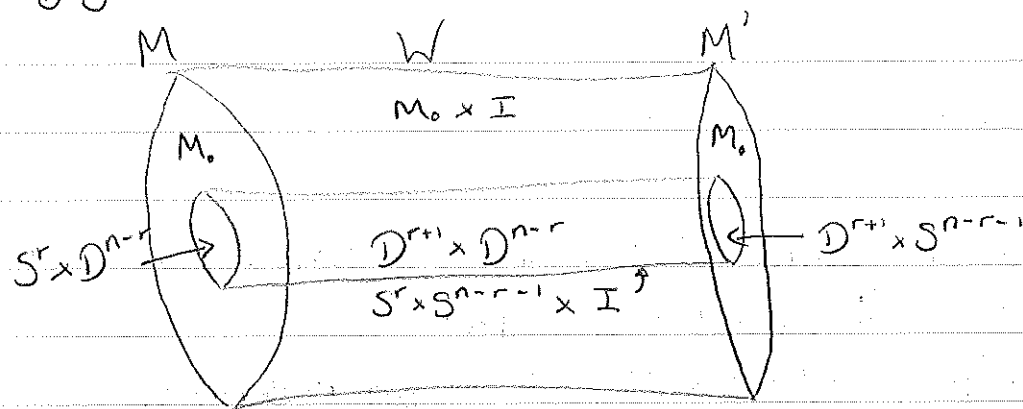 M W M'
M₀ × I
M₀ M₀
Sʳ × Dⁿ⁻ʳ Dʳ⁺¹ × Dⁿ⁻ʳ Dʳ⁺¹ × Sⁿ⁻ʳ⁻¹
Sʳ × Sⁿ⁻ʳ⁻¹ × I